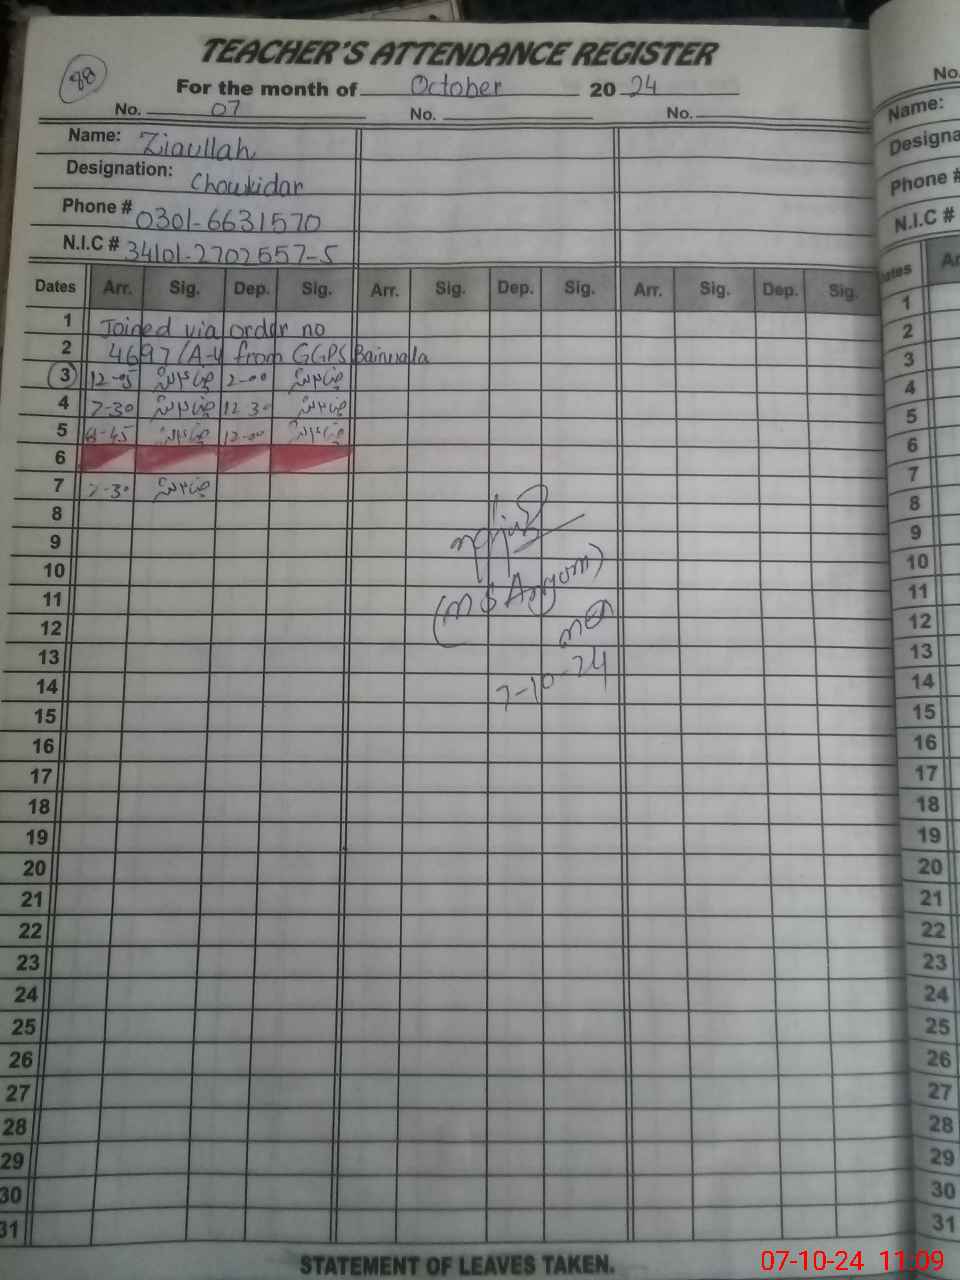 88
TEACHER'S ATTENDANCE REGISTER
For the month of October 2024
No. 07 No. No.
Name: Ziaullah
Designation: Choukidar
Phone # 0301-6631570
N.I.C # 34101-2702557-5
Dates Arr. Sig. Dep. Sig. Arr. Sig. Dep. Sig. Arr. Sig. Dep. Sig.
1 Joined via order no
2 4697/A-4 from GGPS
3 12-05 2-00
4 7-30 12 30
5 8-45 12-00
6
7 7-30
8
9
10
11
12
13
14
15
16
17
18
19
20
21
22
23
24
25
26
27
28
29
30
31
(M S Anjum)
7-10-24
STATEMENT OF LEAVES TAKEN.
No.
Name:
Designa
Phone #
N.I.C #
ates Ar
1
2
3
4
5
6
7
8
9
10
11
12
13
14
15
16
17
18
19
20
21
22
23
24
25
26
27
28
29
30
31
07-10-24 11:09